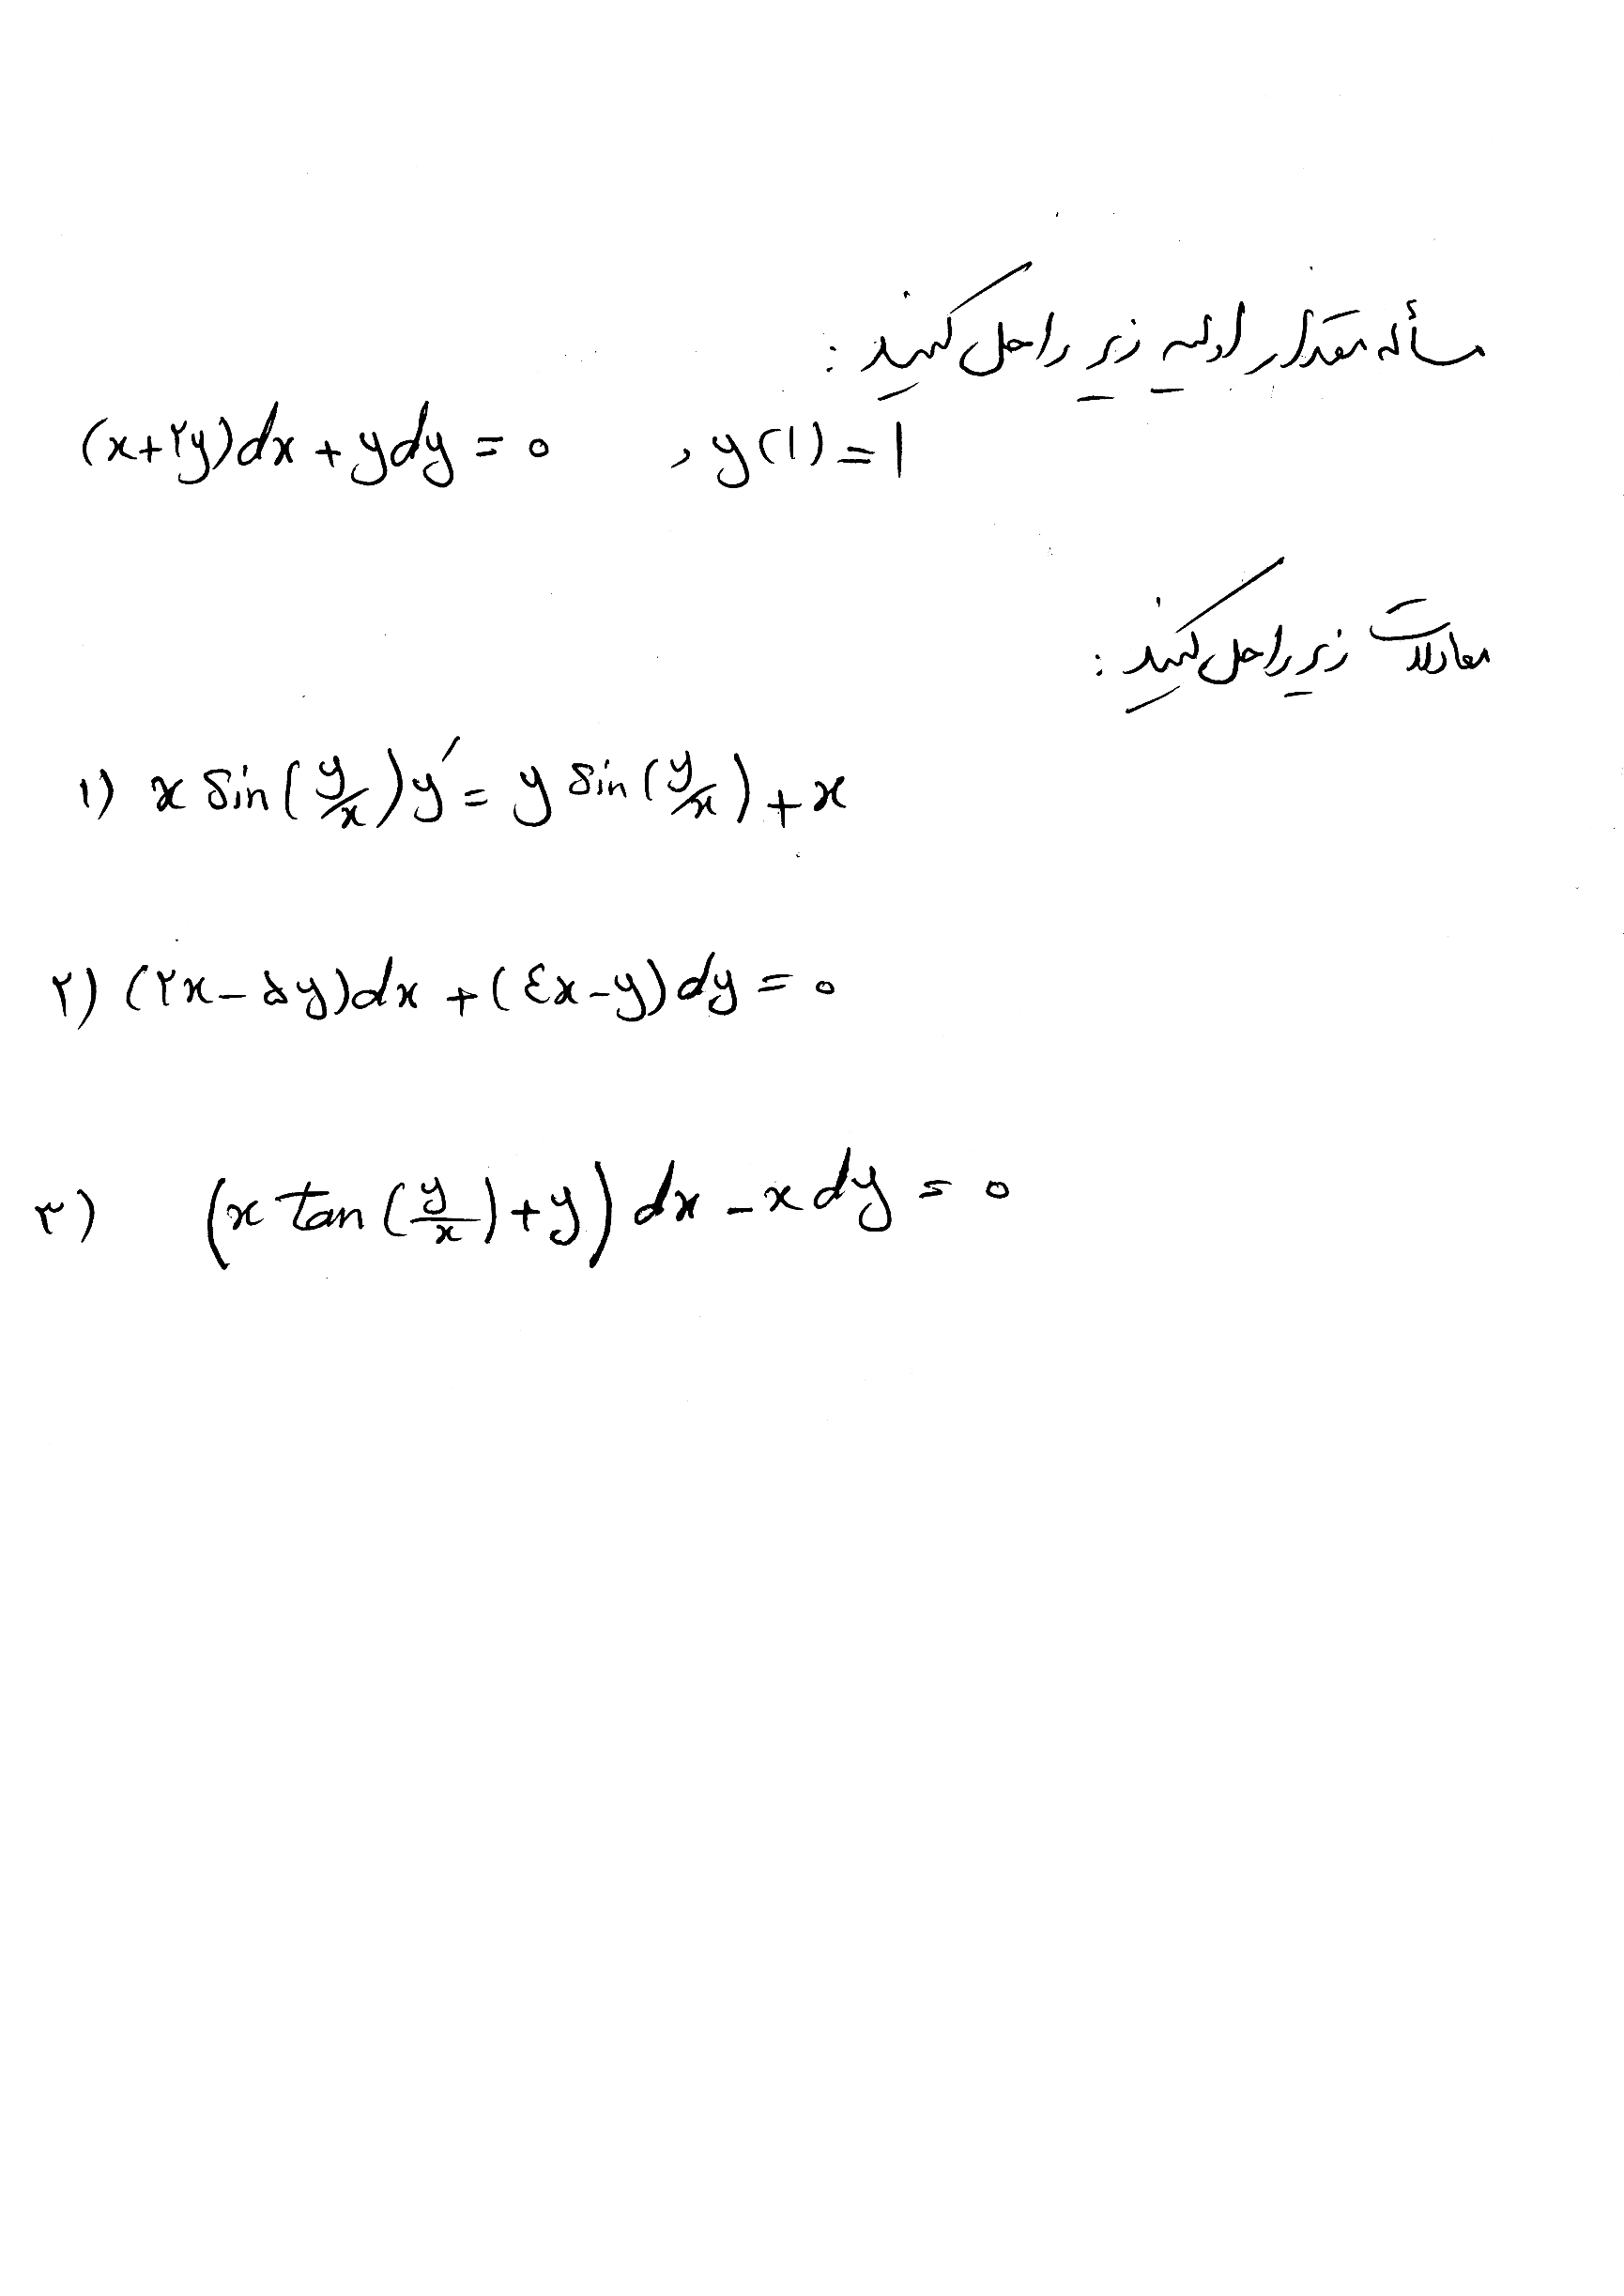 مسأله مقدار اولیه زیر را حل کنید :
(x+۲y)dx + ydy = ۰ , y(1) = 1
معادلات زیر را حل کنید :
۱) x sin(y/x)y′ = y sin(y/x) + x
۲) (۲x - ۵y)dx + (٤x - y)dy = ۰
۳) (x tan(y/x) + y) dx - x dy = ۰